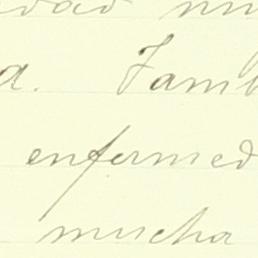 edad mu
a. Tamb
enfermed
mucha